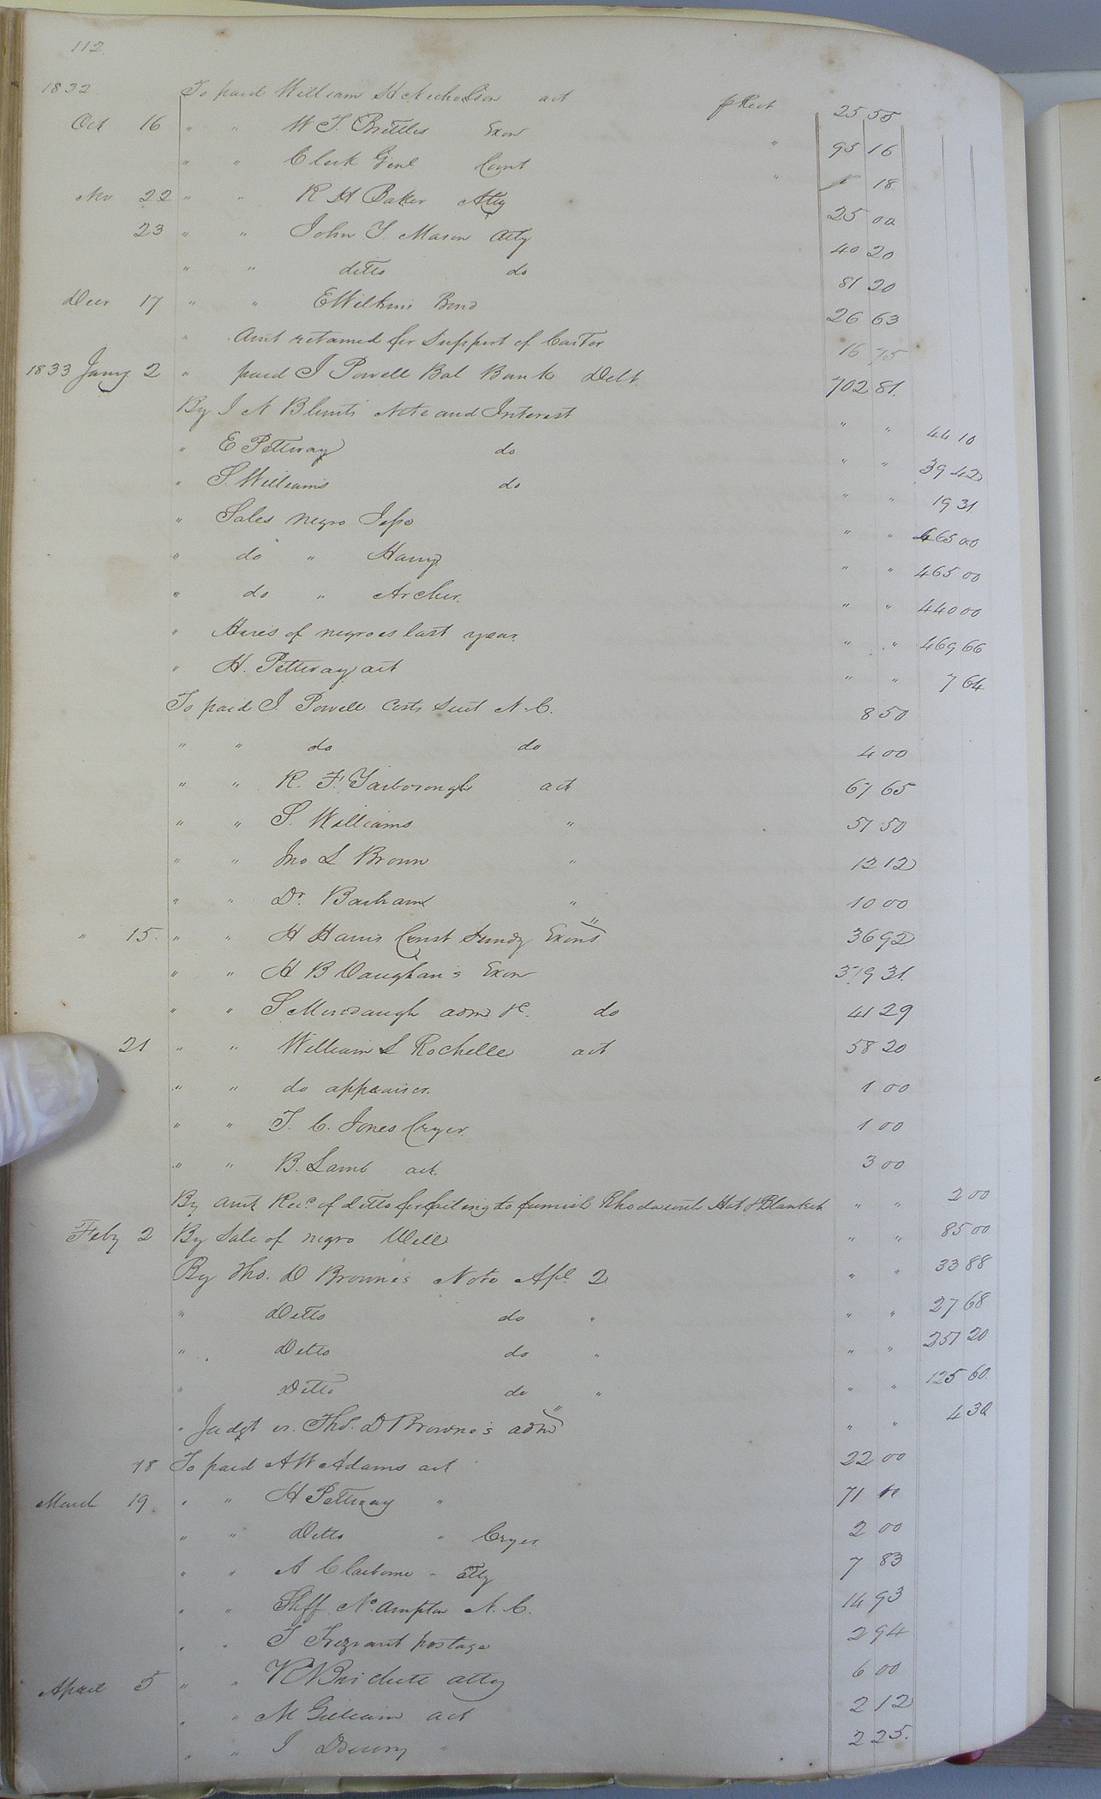 112.
1832 To paid William H Nicholson act pRect 25 55
Oct 16 " " W T. Brittles Exon " 95 16
" " Clerk Genl Court " 18
Nov 22 " " R H Baker Atty 25 00
23 " " John Y. Mason Atty 40 20
" " ditto do 81 20
Decr 17 " " E Wilkins Bond 26 63
" Amt retained for Support of Castor 16 75
1833 Jany 2 " paid J Powell Bal Bank Debt 702 81.
By J N Blunts Note and Interest " " 44 10
" E Pettway do " " 39 42
" S. Williams do " " 19 31
" Sales negro " " 465 00
" do " Harry " " 465 00
" do " Archer. " " 440 00
" Hires of negroes last year " " 469 66
" H. Pettway act " " 7 64
To paid J. Powell Costs Suit N.C. 8 50
" " do do 4 00
" " R. F. Yarborough act 67 65
" " S. Williams " 57 50
" " Jno L Brown " 12 12
" " Dr. Barham " 10 00
" 15. " " H Harris Const Sundy Exons 36 92
" " H B Vaughan's Exon 319 31.
" " S admr &c. do 41 29
21 " " William S Rochelle act 58 20
" " do appraiser. 1 00
" " T. C. Jones Cryer. 1 00
" " B. Lamb act. 3 00
By amt Recd of ditto for failing to furnish Rhoda with Hat & Blanket " " 2 00
Feby 2 By Sale of negro Will " " 85 00
By Tho. D Browne's Note Apl 2 " " 33 88
" Ditto do " " " 27 68
" Ditto do " " " 257 20
" Ditto do " " " 125 60.
" Judgt vs. Thos. D Browne's admr " " 4 30
18 To paid A W Adams act 22 00
March 19. " " H Pettway " 71
" " Ditto " Cryer 2 00
" " A Claiborne - Atty 7 83
" " Shff. No. ampton N.C. 14 93
" " T Trezvant postage 2 94
April 5 " " atty 6 00
" " M Gilliam act 2 12
" " J Drewry " 2 25.